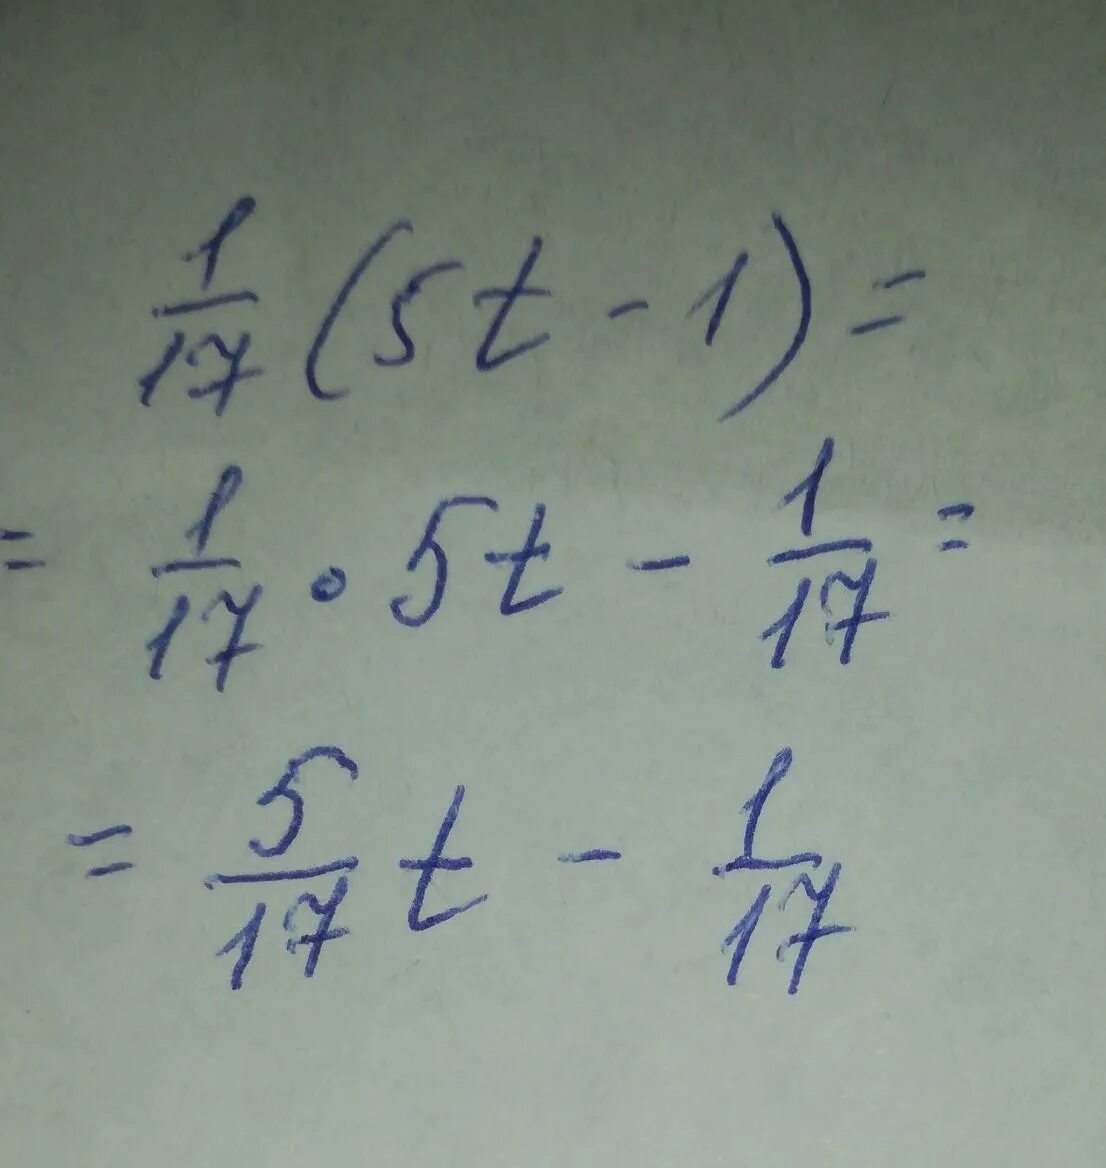 1/17 (5t - 1) =
= 1/17 · 5t - 1/17 =
= 5/17 t - 1/17